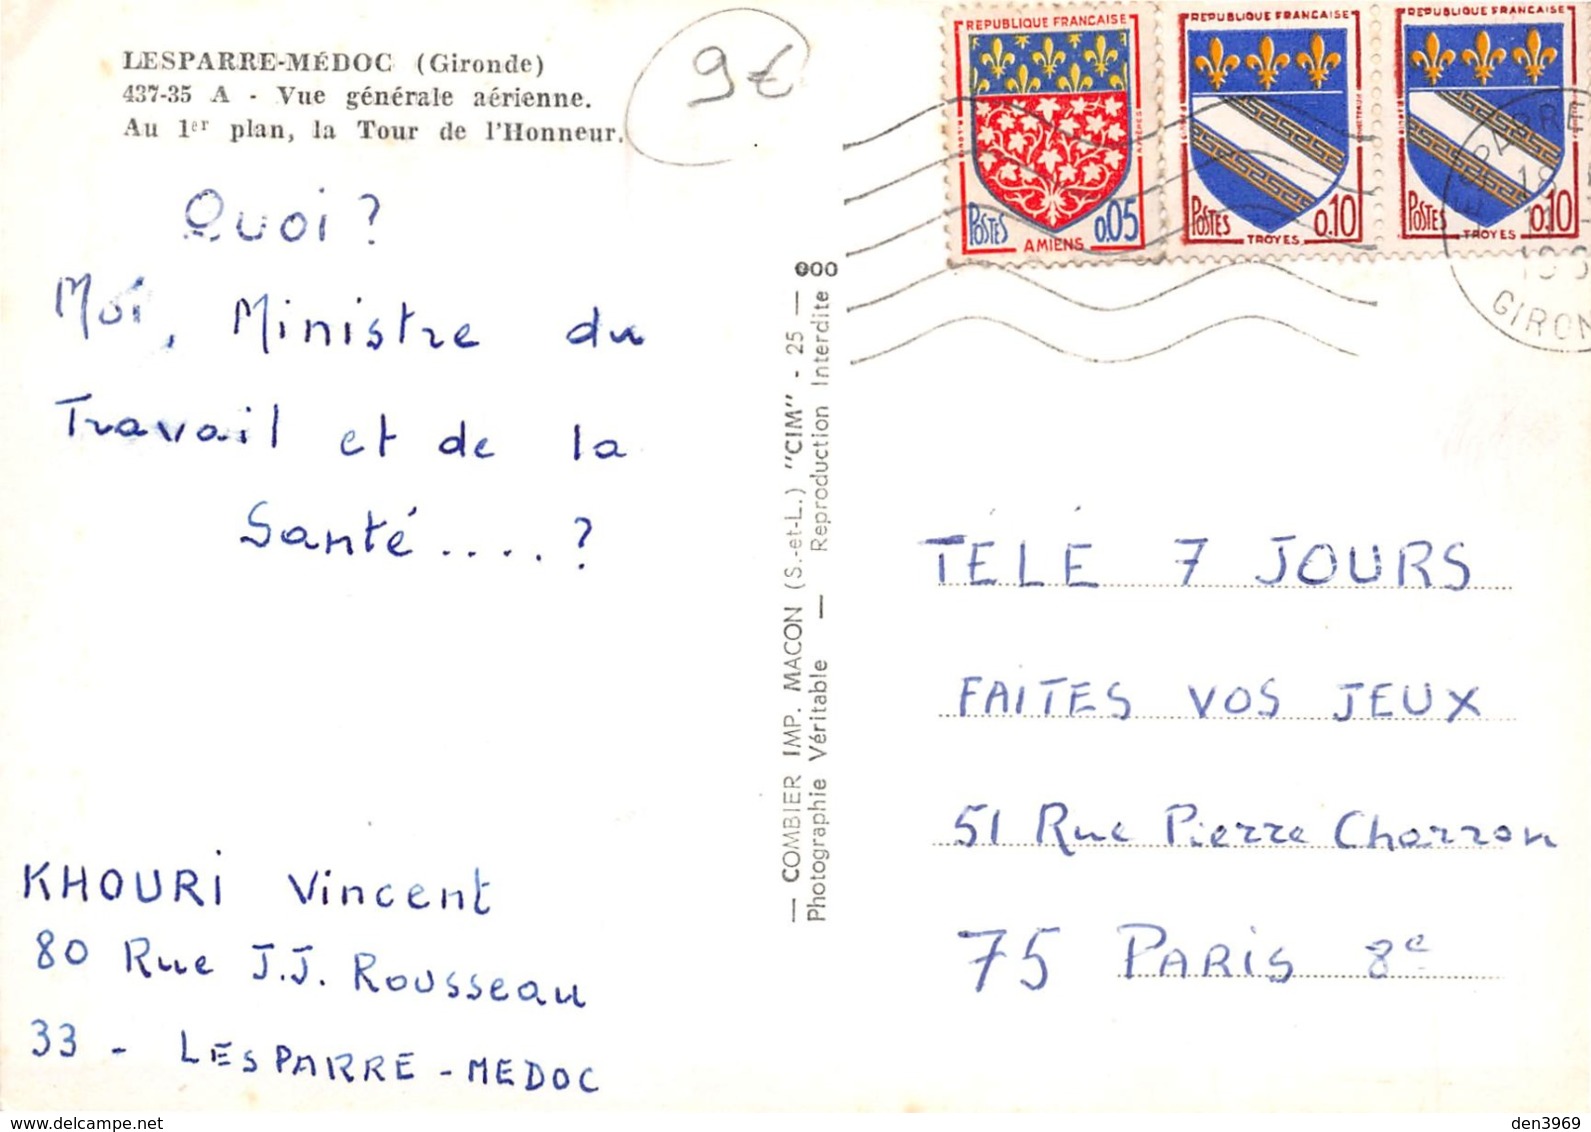 LESPARRE-MÉDOC (Gironde)
437-35 A - Vue générale aérienne.
Au 1er plan, la Tour de l'Honneur.
9€
Quoi ?
Moi, Ministre du
Travail et de la
Santé .... ?
KHOURI Vincent
80 Rue J.J. ROUSSEAU
33 - LESPARRE - MEDOC
— COMBIER IMP. MACON (S.-et-L.) "CIM" - 25 —
Photographie Véritable — Reproduction Interdite
REPUBLIQUE FRANÇAISE
POSTES
0,05
AMIENS
REPUBLIQUE FRANÇAISE
POSTES
0,10
TROYES
REPUBLIQUE FRANÇAISE
POSTES
0,10
TROYES
TÉLÉ 7 JOURS
FAITES VOS JEUX
51 Rue Pierre Charron
75 PARIS 8e
delcampe.net
den3969